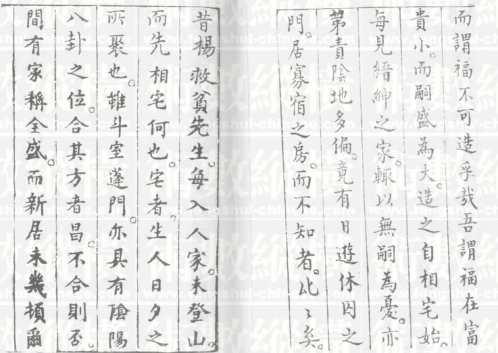 而謂福不可造乎哉吾謂福在富
貴小。而嗣盛為大。造之自相宅始。
每見縉紳之家。輒以無嗣為憂。亦
第責陰地多偏。竟有日遊休囚之
門。居寡宿之房。而不知者。比〻矣。
昔楊救貧先生。每入人家。未登山。
而先相宅何也。宅者生人日夕之
所聚也。雖斗室蓬門。亦具有陰陽
八卦之位。合其方者昌。不合則否。
間有家稱全盛。而新居未幾頓爾